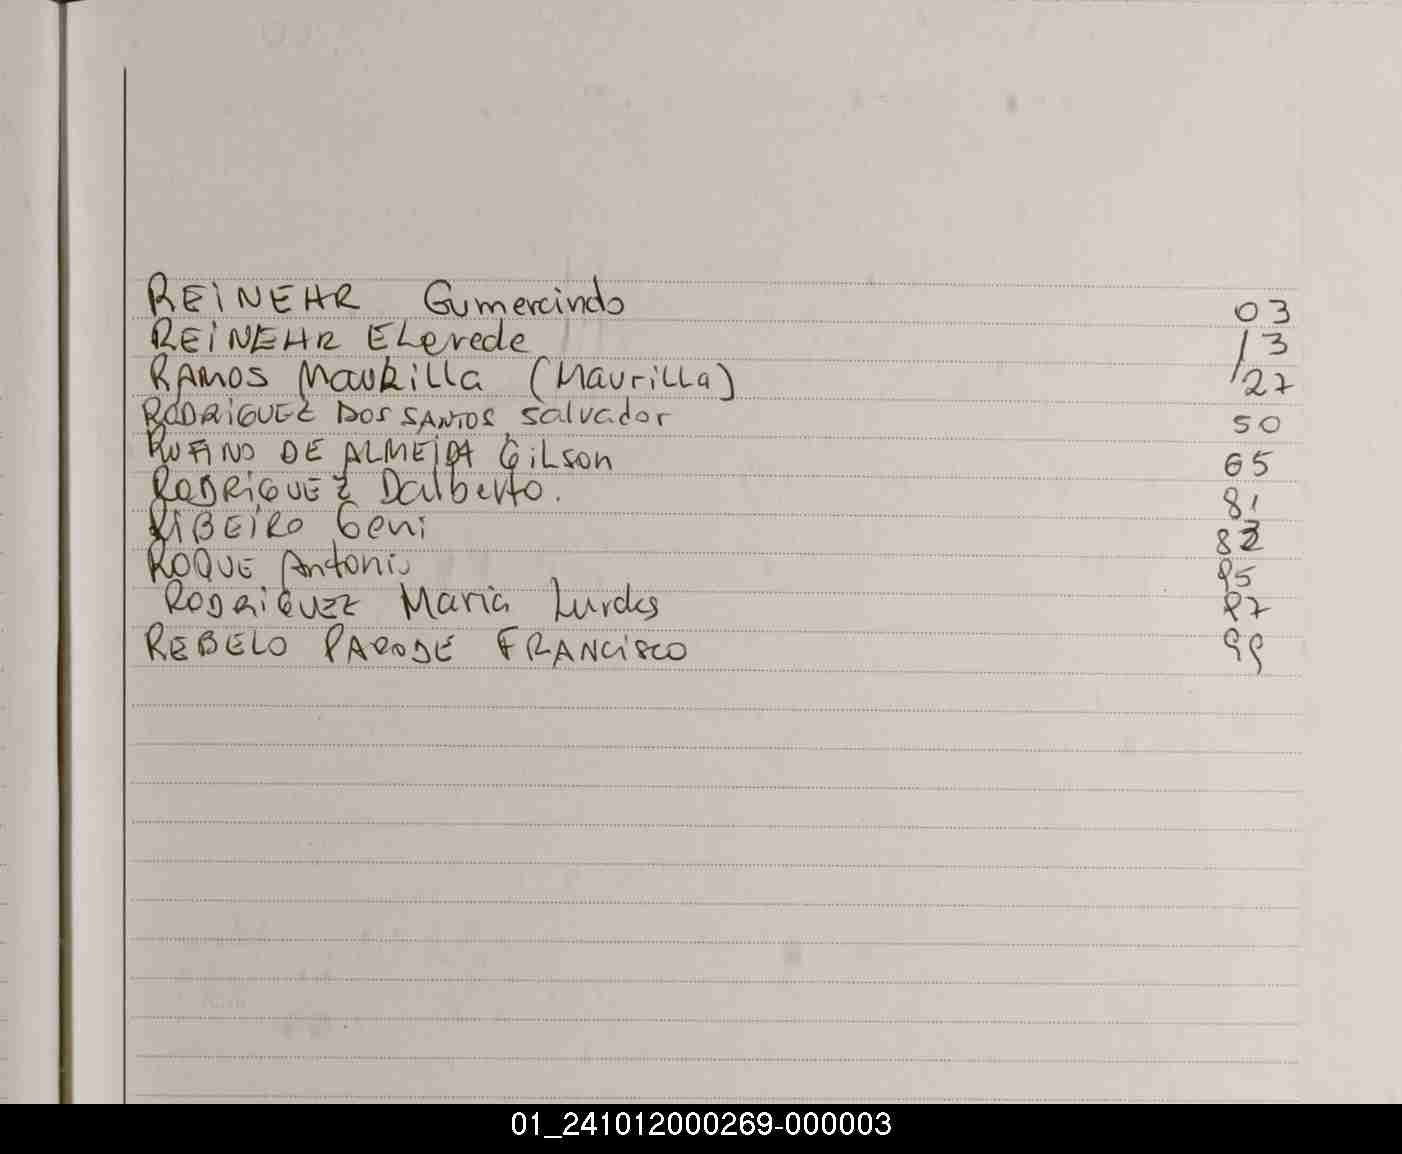 REINEHR Gumercindo 03
REINEHR ELerede 13
RAMOS Maurilla (Maurilla) 27
RODRIGUEZ DOS SANTOS Salvador 50
RUFINO DE ALMEIDA GiLson 65
RODRIGUEZ Dalberto. 81
RIBEIRO Geni 82
ROQUE Antonio 95
RODRIGUEZ Maria Lurdes 97
REBELO PARODE FRANCISCO 99
01_241012000269-000003